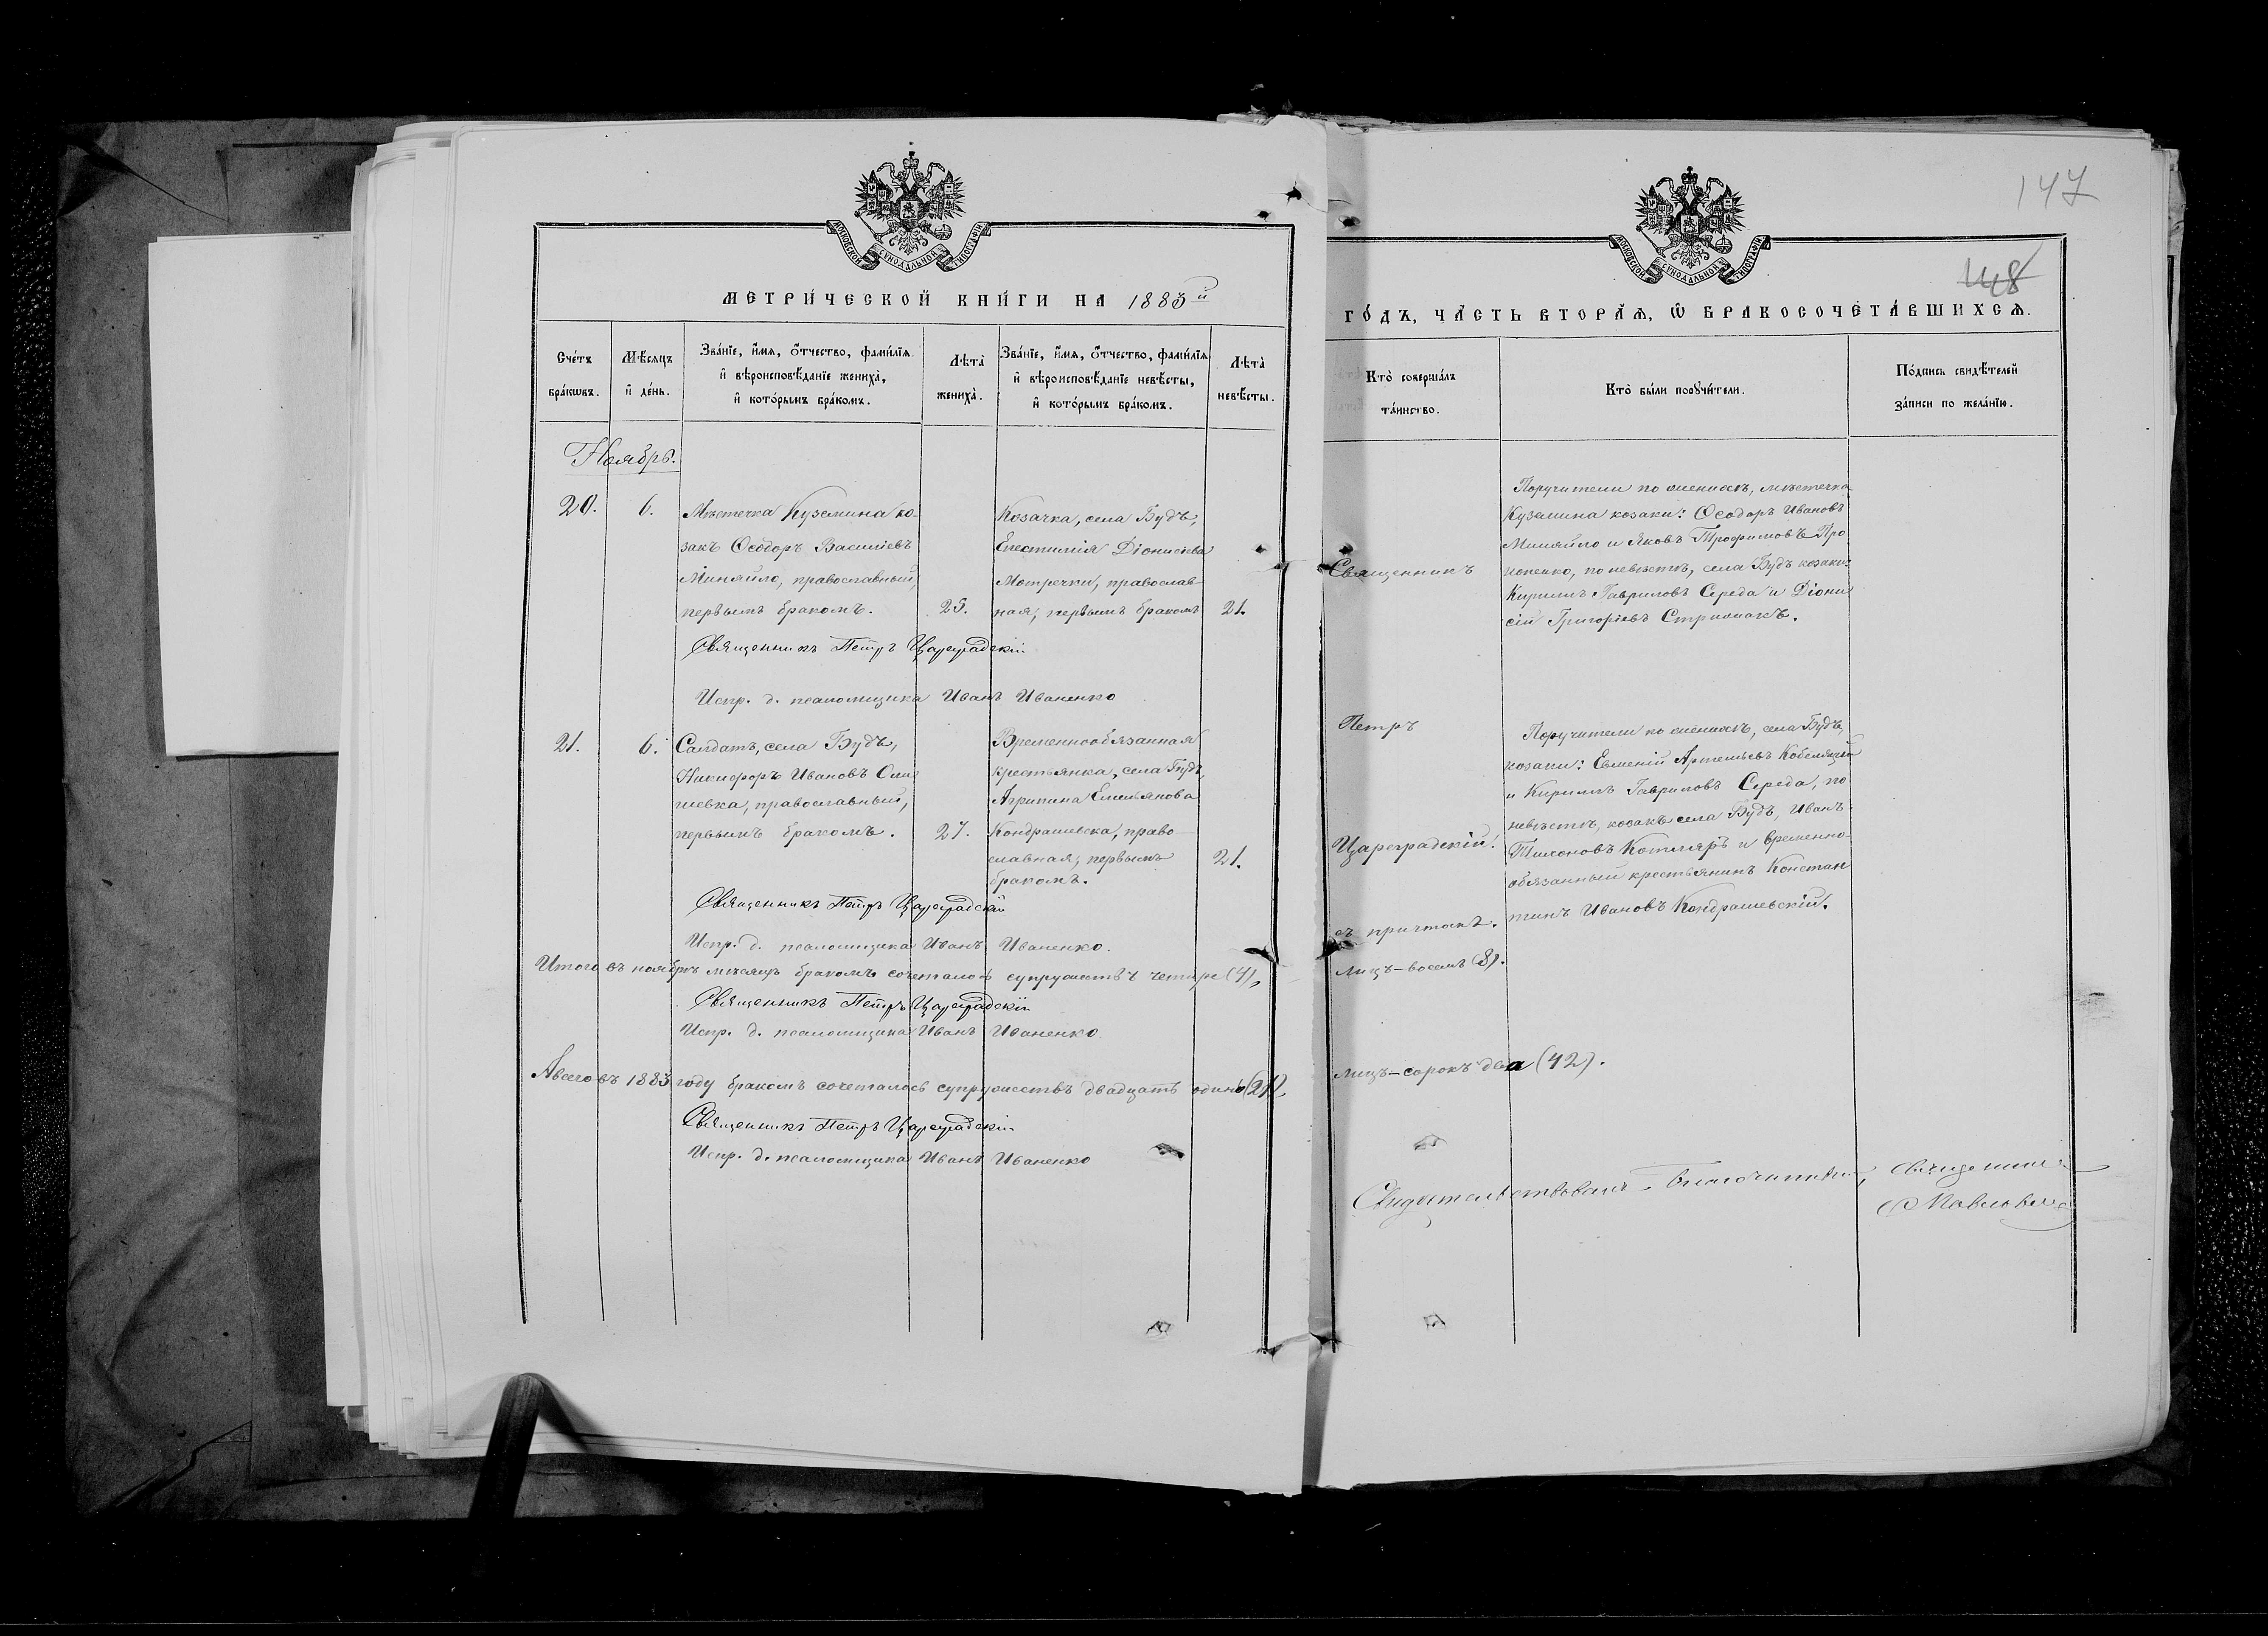 147
148
МОСКОВСКОЙ СУНОДАЛЬНОЙ ТИПОГРАФІИ
МОСКОВСКОЙ СУНОДАЛЬНОЙ ТИПОГРАФІИ
МЕТРИ́ЧЕСКОЙ КНИ́ГИ НА 1883й
ГО́ДЪ, ЧА́СТЬ ВТОРА́Ѧ, Ѡ БРАКОСОЧЕТА́ВШИХСѦ.
Сче́тъ бра́кѡвъ.
Мѣ́сѧцъ и҆ де́нь.
Зва́нїе, и҆́мѧ, ѻ҆́тчество, фами́лїѧ
и҆ вѣроисповѣ́данїе жениха̀,
и҆ кото́рымъ бра́комъ.
Лѣта̀ жениха̀.
Зва́нїе, и҆́мѧ, ѻ҆́тчество, фами́лїѧ
и҆ вѣроисповѣ́данїе невѣ́сты,
и҆ кото́рымъ бра́комъ.
Лѣта̀ невѣ́сты.
Кто̀ соверша́лъ
та́инство.
Кто̀ бы́ли порꙋчи́тели.
По́дпись свидѣ́телей
за́писи по жела́нїю.
Ноябрь.
20.
6.
Мѣстечка Куземина ко-
закъ Ѳеодоръ Василіевъ
Миняйло, православный,
первымъ бракомъ.
25.
Козачка, села Будъ,
Епистимія Діонисіева
Мотречки, православ-
ная, первымъ бракомъ
21.
Священникъ
Поручители по женихѣ, мѣстечка
Куземина козаки: Ѳеодоръ Ивановъ
Миняйло и Яковъ Трофимовъ Про
копенко, по невѣстѣ, села Будъ козаки:
Кириллъ Гавриловъ Середа и Діони
сій Григоріевъ Стрижакъ.
Священникъ Петръ Цареградскій
Испр. д. псаломщика Иванъ Иваненко
21.
6.
Солдатъ, села Будъ,
Никифоръ Ивановъ
православный,
первымъ бракомъ.
27.
Временнообязанная
крестьянка, села Будъ,
Агрипина Емельянова
Кондрашевска, право-
славная, первымъ
бракомъ.
21.
Петръ
Цареградскій
съ причтомъ.
Поручители по женихѣ, села Будъ,
козаки: Евменій Артемьевъ Кобеляцкій
и Кириллъ Гавриловъ Середа, по
невѣстѣ, козакъ села Будъ, Иванъ
Тихоновъ Котляръ и временно-
обязанный крестьянинъ Констан
тинъ Ивановъ Кондрашевскій.
Священникъ Петръ Цареградскій
Испр. д. псаломщика Иванъ Иваненко.
Итого въ ноябрѣ мѣсяцѣ бракомъ сочеталось супружествъ четыре (4),
лицъ – восемь (8).
Священникъ Петръ Цареградскій
Испр. д. псаломщика Иванъ Иваненко
А всего въ 1883 году бракомъ сочеталось супружествъ двадцать одинъ (21),
лицъ – сорокъ два (42).
Священникъ Петръ Цареградскій
Испр. д. псаломщика Иванъ Иваненко
Свидетельствовалъ Благочинный, Священникъ